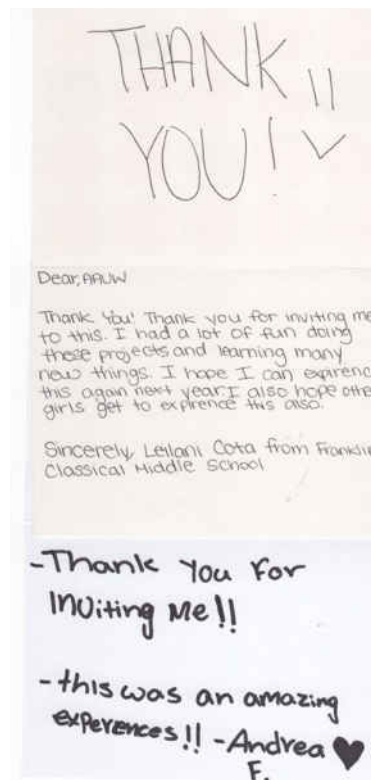 THANK
YOU!
Dear, AAUW
Thank You! Thank you for inviting me
to this. I had a lot of fun doing
these projects and learning many
new things. I hope I can exparence
this again next year. I also hope othe
girls get to expirence this also.
Sincerely, Leilani Cota from Franklin
Classical Middle School
-Thank You For
Inviting Me!!
-this was an amazing
experences!! -Andrea ♥
F.